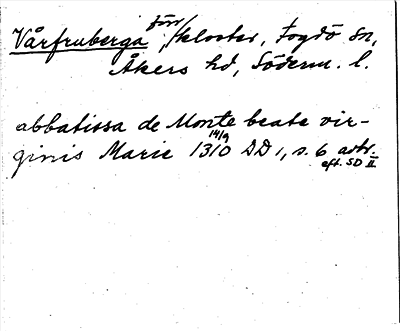 Vårfruberga förr/kloster, Fogdö sn,
Åkers hd, Söderm. l.
abbatissa de Monte beate vir-
ginis Marie 1310 14/9 DD 1, s. 6 avtr.
eft. SD II